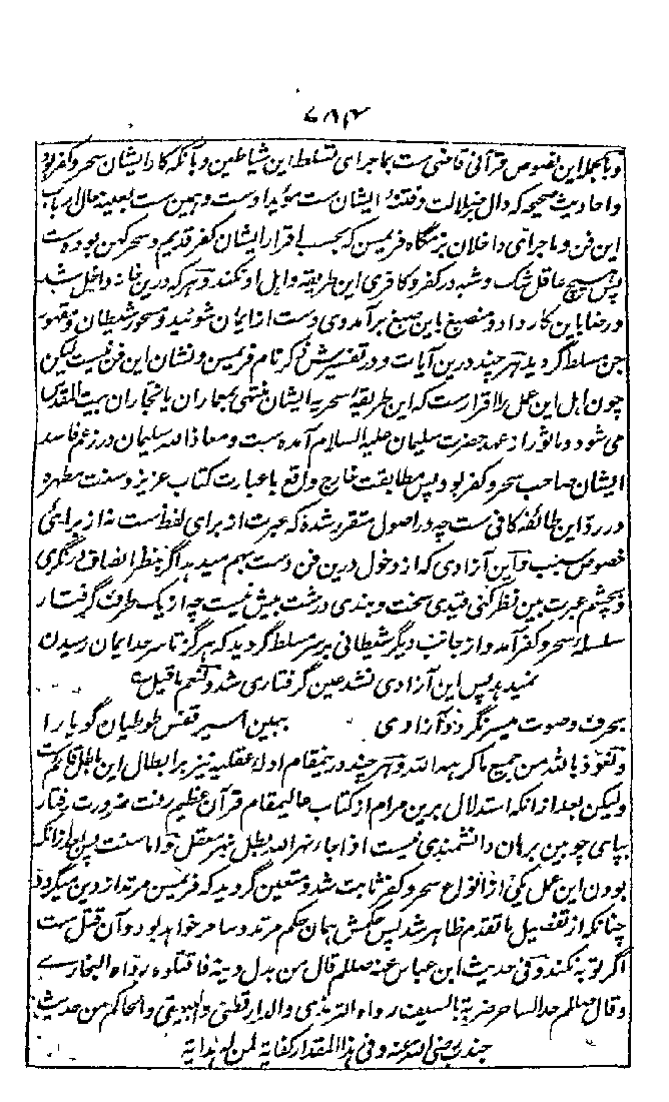 ۷۸۴
و بالجمله این نصوص قرآنی قاضی ست بماجرای تسلط این شیاطین و بآنکه کار ایشان سحر و کفر بود
و احادیث صحیحه که دال بر ضلالت و فتنهٔ ایشان ست مؤید اوست و همین ست بعینه حال ارباب
این فن و ماجرای داخلان بزمگاه فریمسن که بحسب اقرار ایشان کفر قدیم و سحر کهن بوده ست
پس هیچ عاقل شک و شبه در کفر و کافری این طریقه و اهل او نکند و هر که درین خانه داخل شد
و رضا باین کار داد و منصبغ باین صبغ برآمد وی دست از ایمان شوئید و مسحور شیطان و مقهور
جن مسلط گردید هر چند درین آیات و در تفسیرش ذکر نام فریمسن و نشان این فن نیست لیکن
چون اهل این عمل را اقرار ست که این طریقهٔ سحریه ایشان منتهی بمعماران یا نجاران بیت المقدس
می شود و ماثور از عهد حضرت سلیمان علیه السلام آمده ست و معاذ الله سلیمان در زعم فاسد
ایشان صاحب سحر و کفر بود پس مطابقت خارج و واقع با عبارت کتاب عزیز و سنت مطهره
در رد این طائفه کافی ست چه در اصول متقرر شده که عبرت از برای لفظ ست نه از برای
خصوص سبب و این آزادی که از دخول درین فن دست بهم میدهد اگر بنظر انصاف درنگری
و بچشم عبرت بین نظر کنی قیدی سخت و بندی درشت بیش نیست چه از یک طرف گرفتار
سلسلهٔ سحر و کفر آمد و از جانب دیگر شیطانی بر سر مسلط گردید که هرگز تا سرحد ایمان رسیدن
نمیدهد پس این آزادی نشد عین گرفتاری شد و نعم ما قیل
بحرف و صوت میسر نگردد آزادی ببین اسیر قفس طوطیان گویا را
و نعوذ بالله من جمیع ما کرهه الله و هر چند درینمقام ادلهٔ عقلیه نیز بر ابطال این باطل قائم ست
ولیکن بعد ازانکه استدلال برین مرام از کتاب عالیمقام قرآن عظیم رفت ضرورت رفتار
بپای چوبین برهان دانشمندی نیست اذا جاء نهر الله بطل نهر معقل و اما سنت پس بعد ازانکه
بودن این عمل یکی از انواع سحر و کفر ثابت شد و متعین گردید که فریمسن مرتد از دین میگردد
چنانکه از تفصیل ما تقدم ظاهر شد پس حکمش همان حکم مرتد و ساحر خواهد بود و آن قتل ست
اگر توبه نکند و فی حدیث ابن عباس عنه صلعم قال من بدل دینه فاقتلوه رواه البخاری
و قال صلعم حد الساحر ضربة بالسیف رواه الترمذی والدارقطنی والبیهقی والحاکم من حدیث
جندب رضی الله عنه و فی هذا المقدار کفایة لمن له هدایة